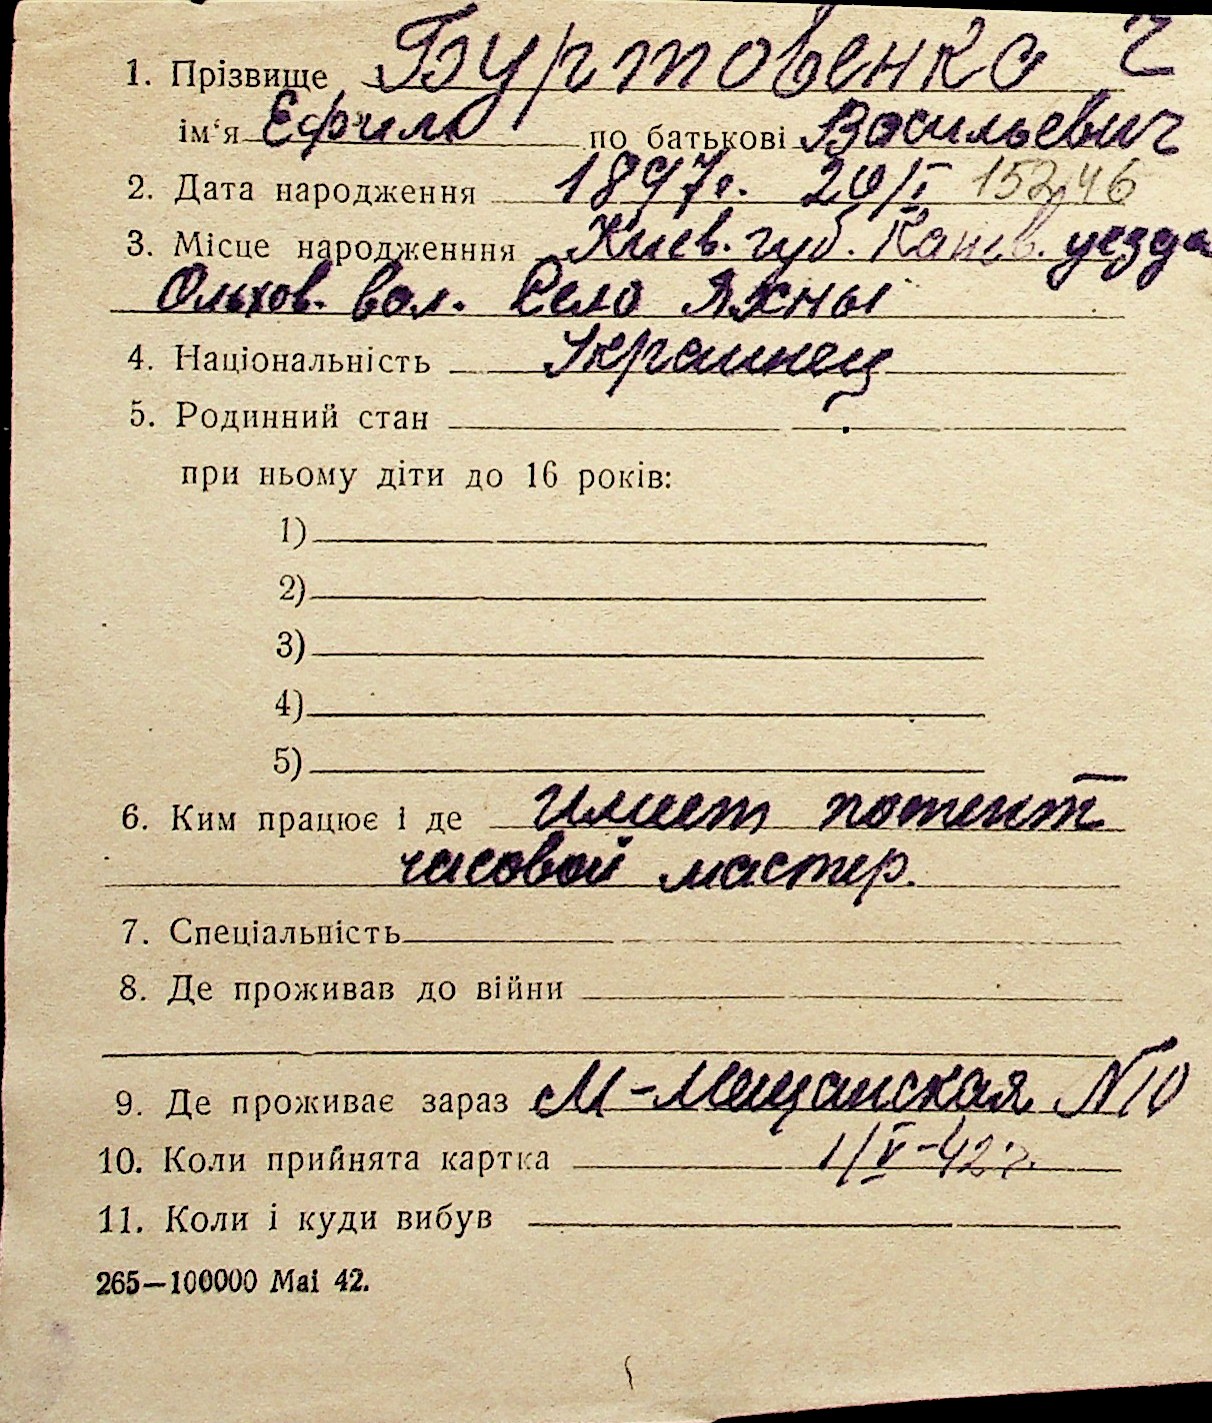 1. Прізвище Буртовенко Ч
ім'я Ефим по батькові Васильевич
2. Дата народження 1897г. 20/I 152,46
3. Місце народженння Киев. губ. Канев. уезда
Ольхов. вол. Село Яхны
4. Національність Украинец
5. Родинний стан
при ньому діти до 16 років:
1)
2)
3)
4)
5)
6. Ким працює і де Имеет потент
часовой мастер.
7. Спеціальність
8. Де проживав до війни
9. Де проживає зараз М-Мещанская N10
10. Коли прийнята картка 1/V-42г.
11. Коли і куди вибув
265—100000 Mai 42.